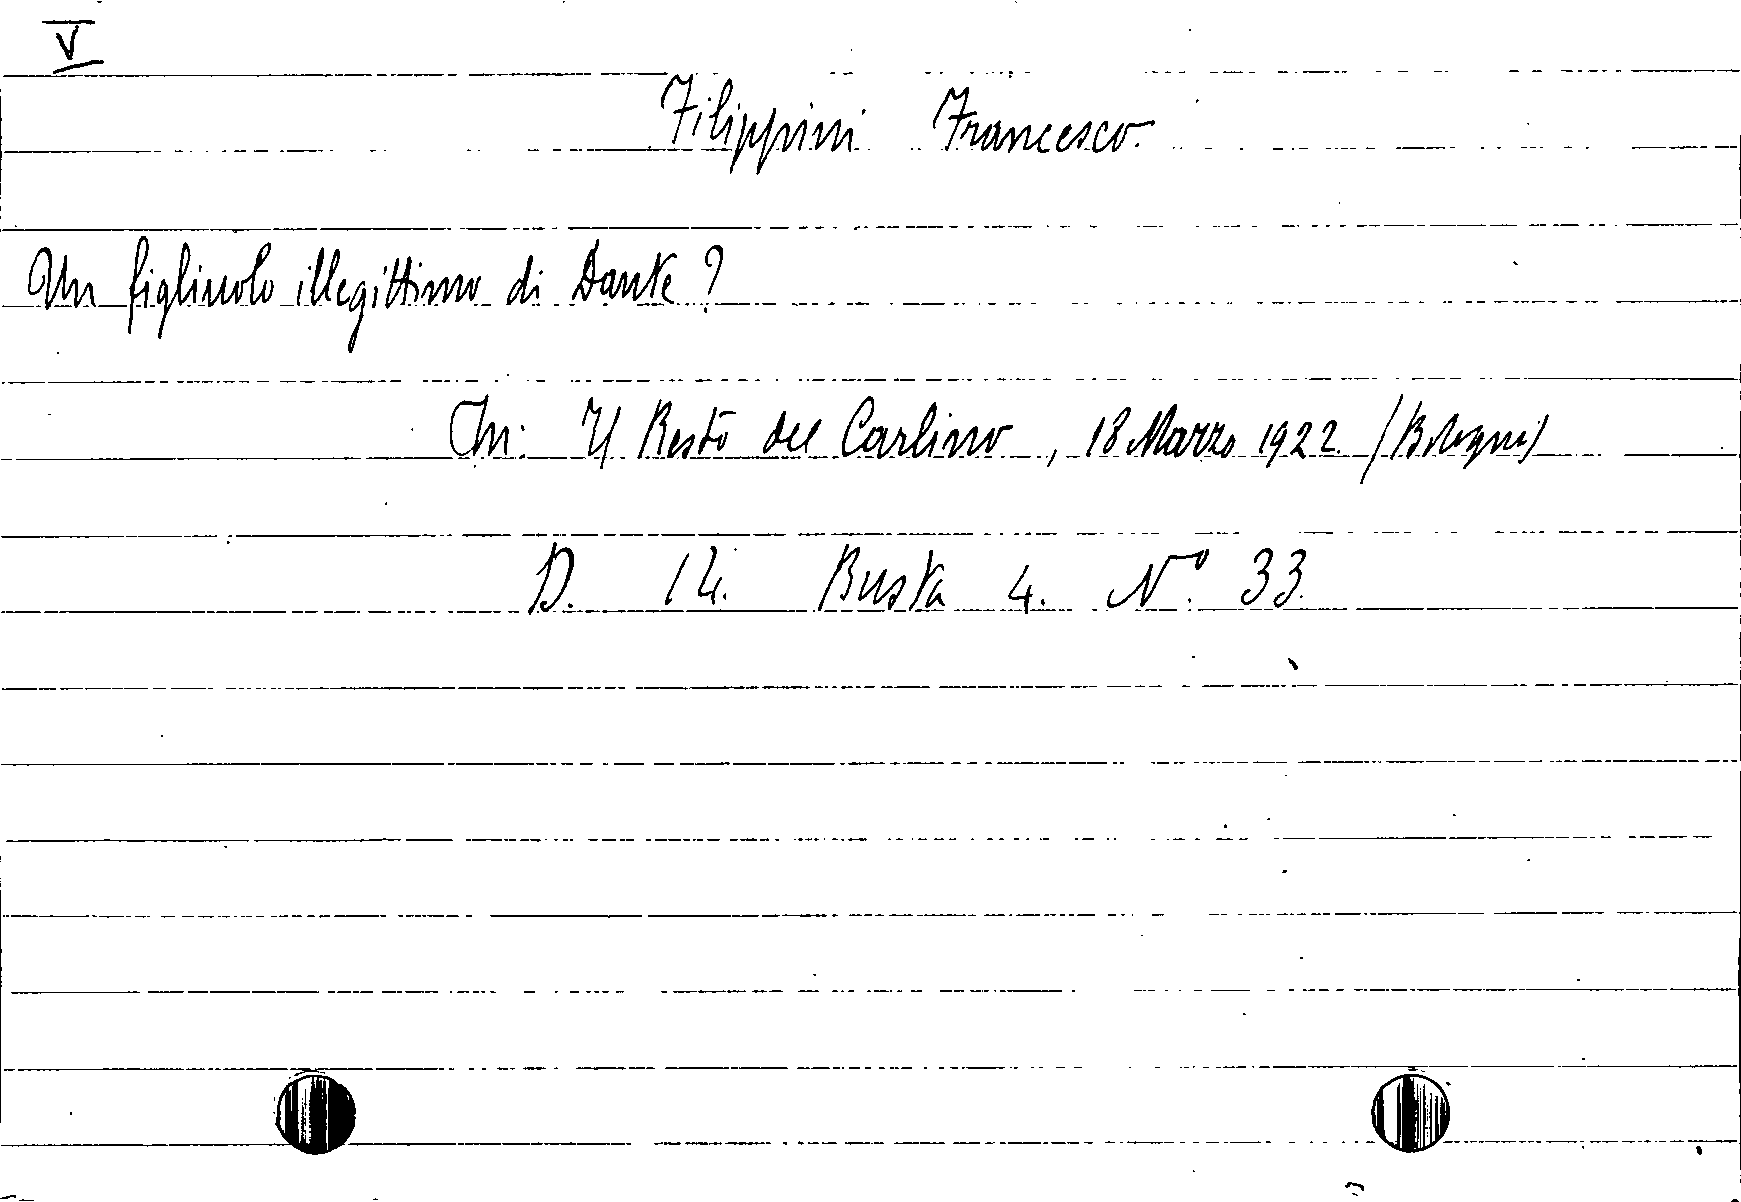 V
Filippini Francesco.
Un figliuolo illegittimo di Dante?
In: Il Resto del Carlino, 18 Marzo 1922. (Bologna)
D. 14. Busta 4. N.° 33.